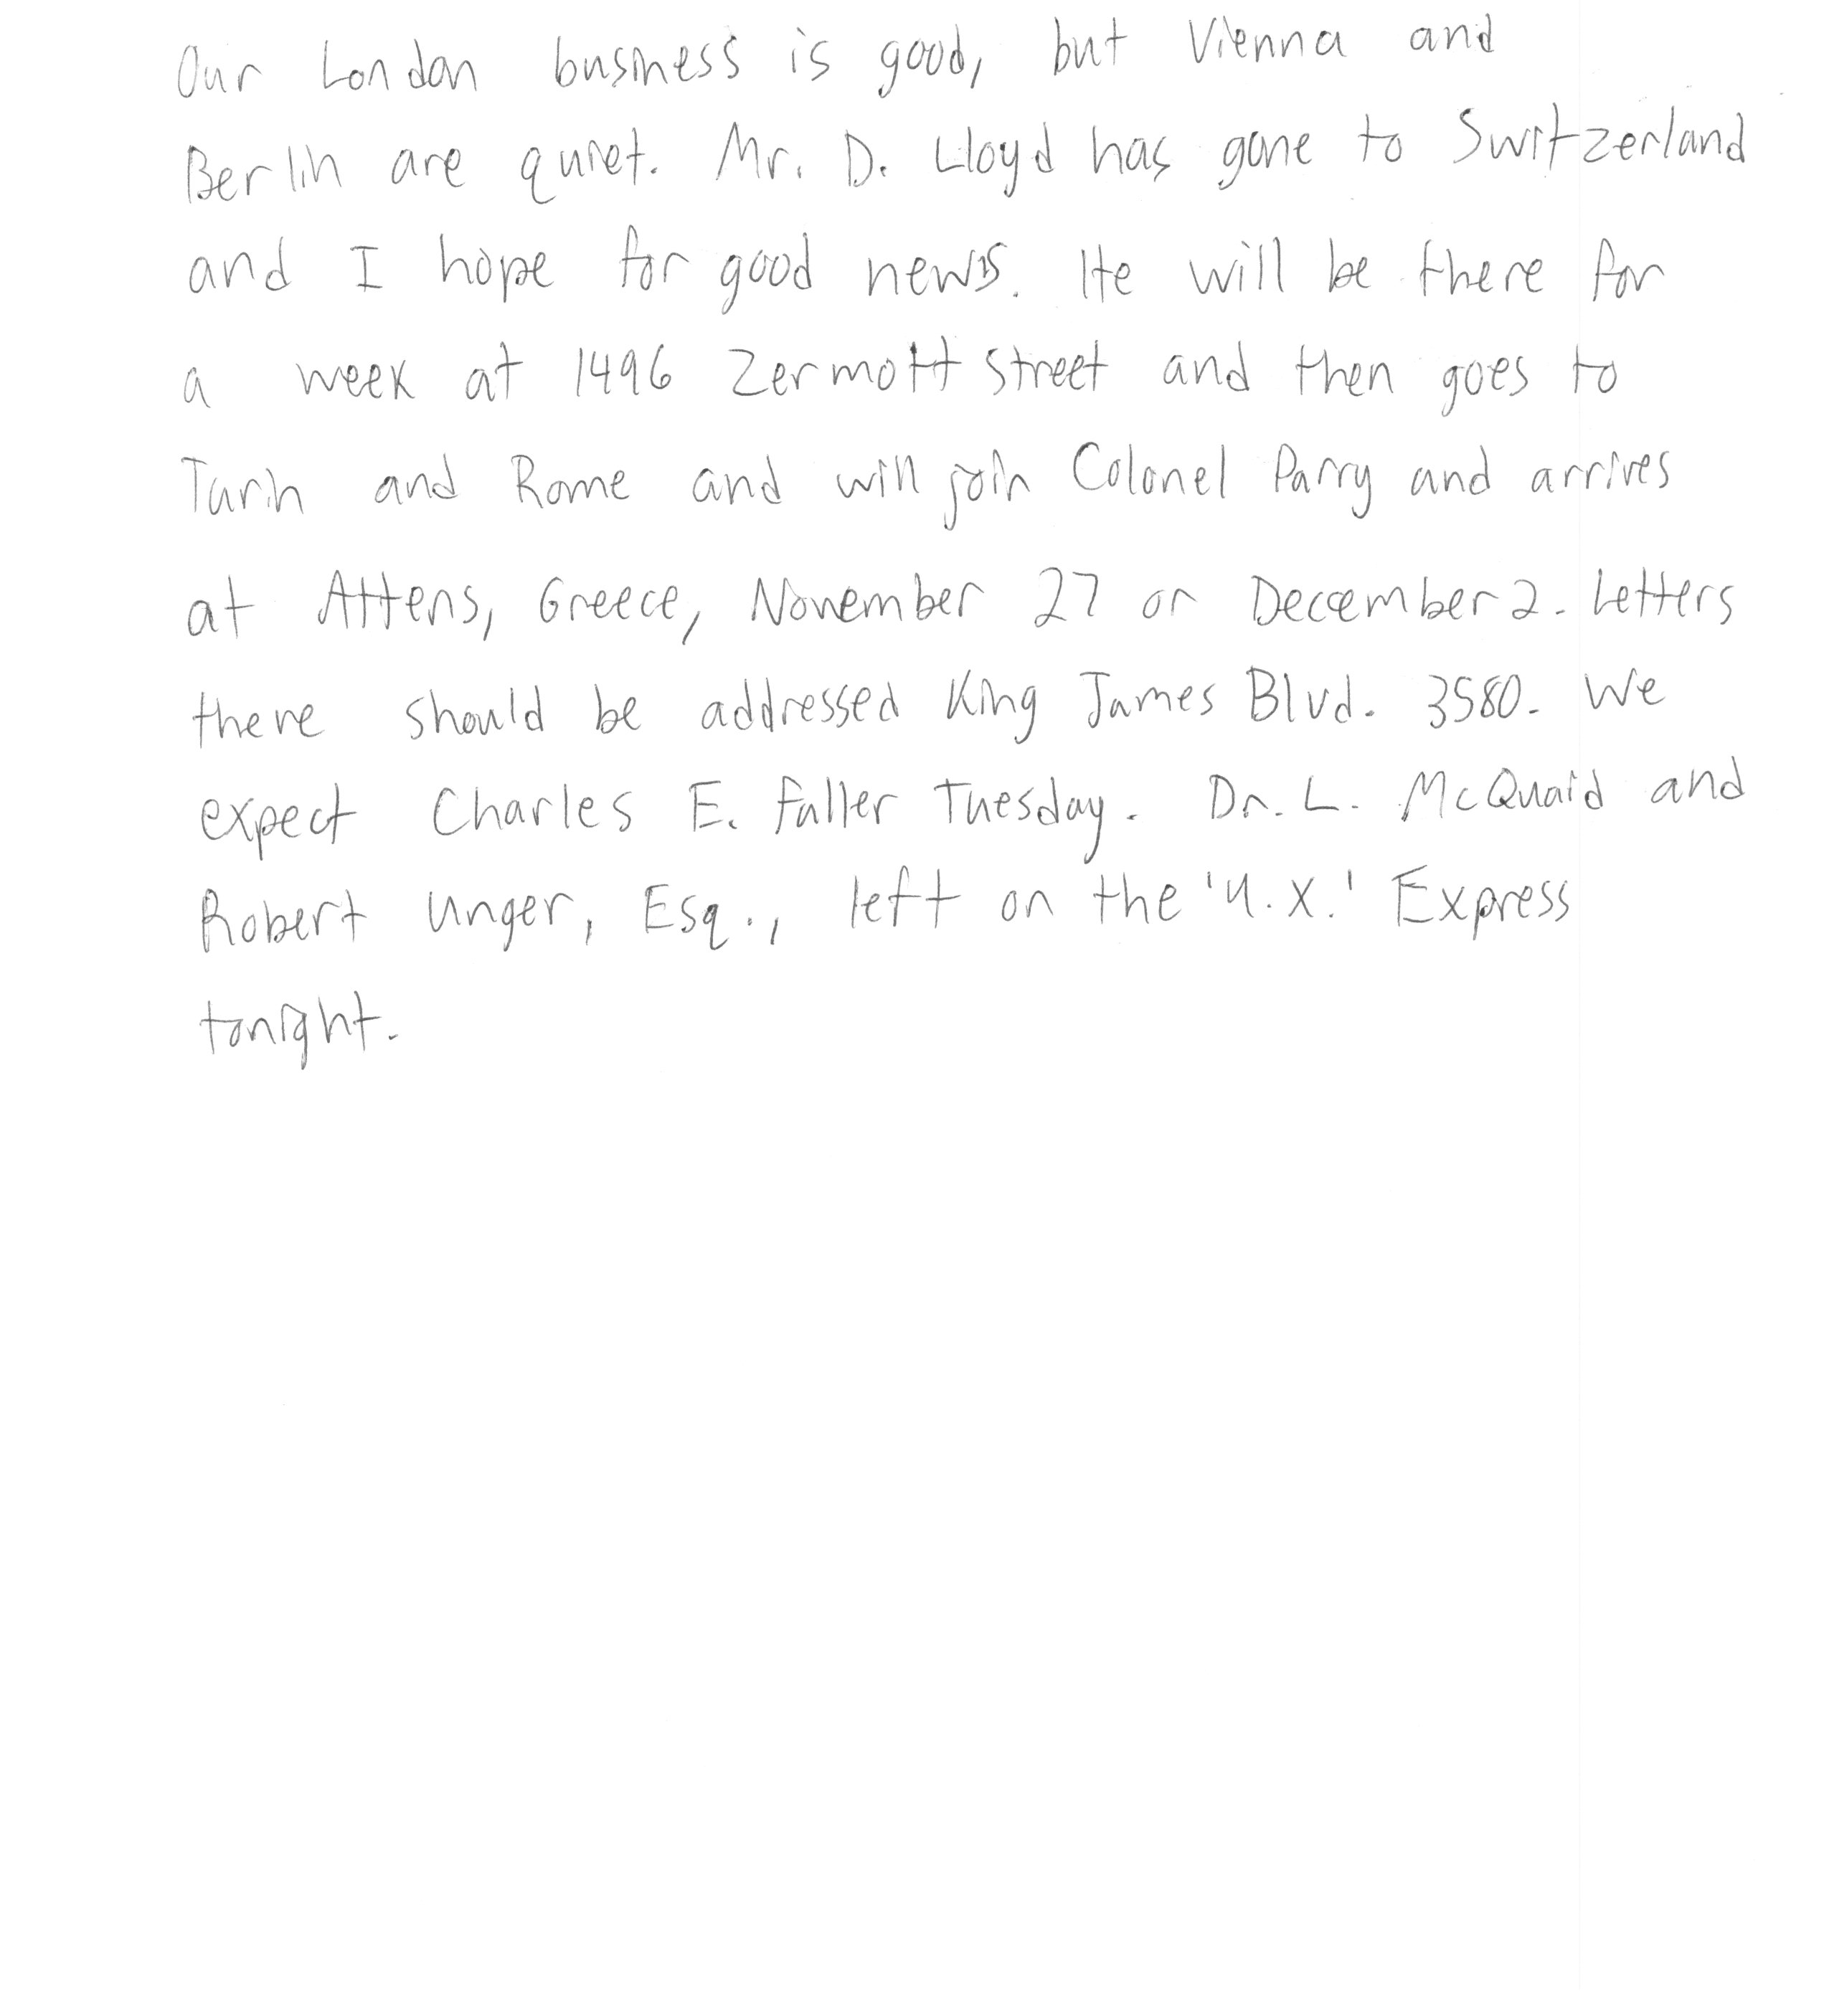 Our London business is good, but Vienna and
Berlin are quiet. Mr. D. Lloyd has gone to Switzerland
and I hope for good news. He will be there for
a week at 1496 Zermott Street and then goes to
Turin and Rome and will join Colonel Parry and arrives
at Attens, Greece, November 27 or December 2. Letters
there should be addressed King James Blvd. 3580. We
expect Charles E. Fuller Tuesday. Dr. L. McQuaid and
Robert Unger, Esq., left on the 'Y.X.' Express
tonight.